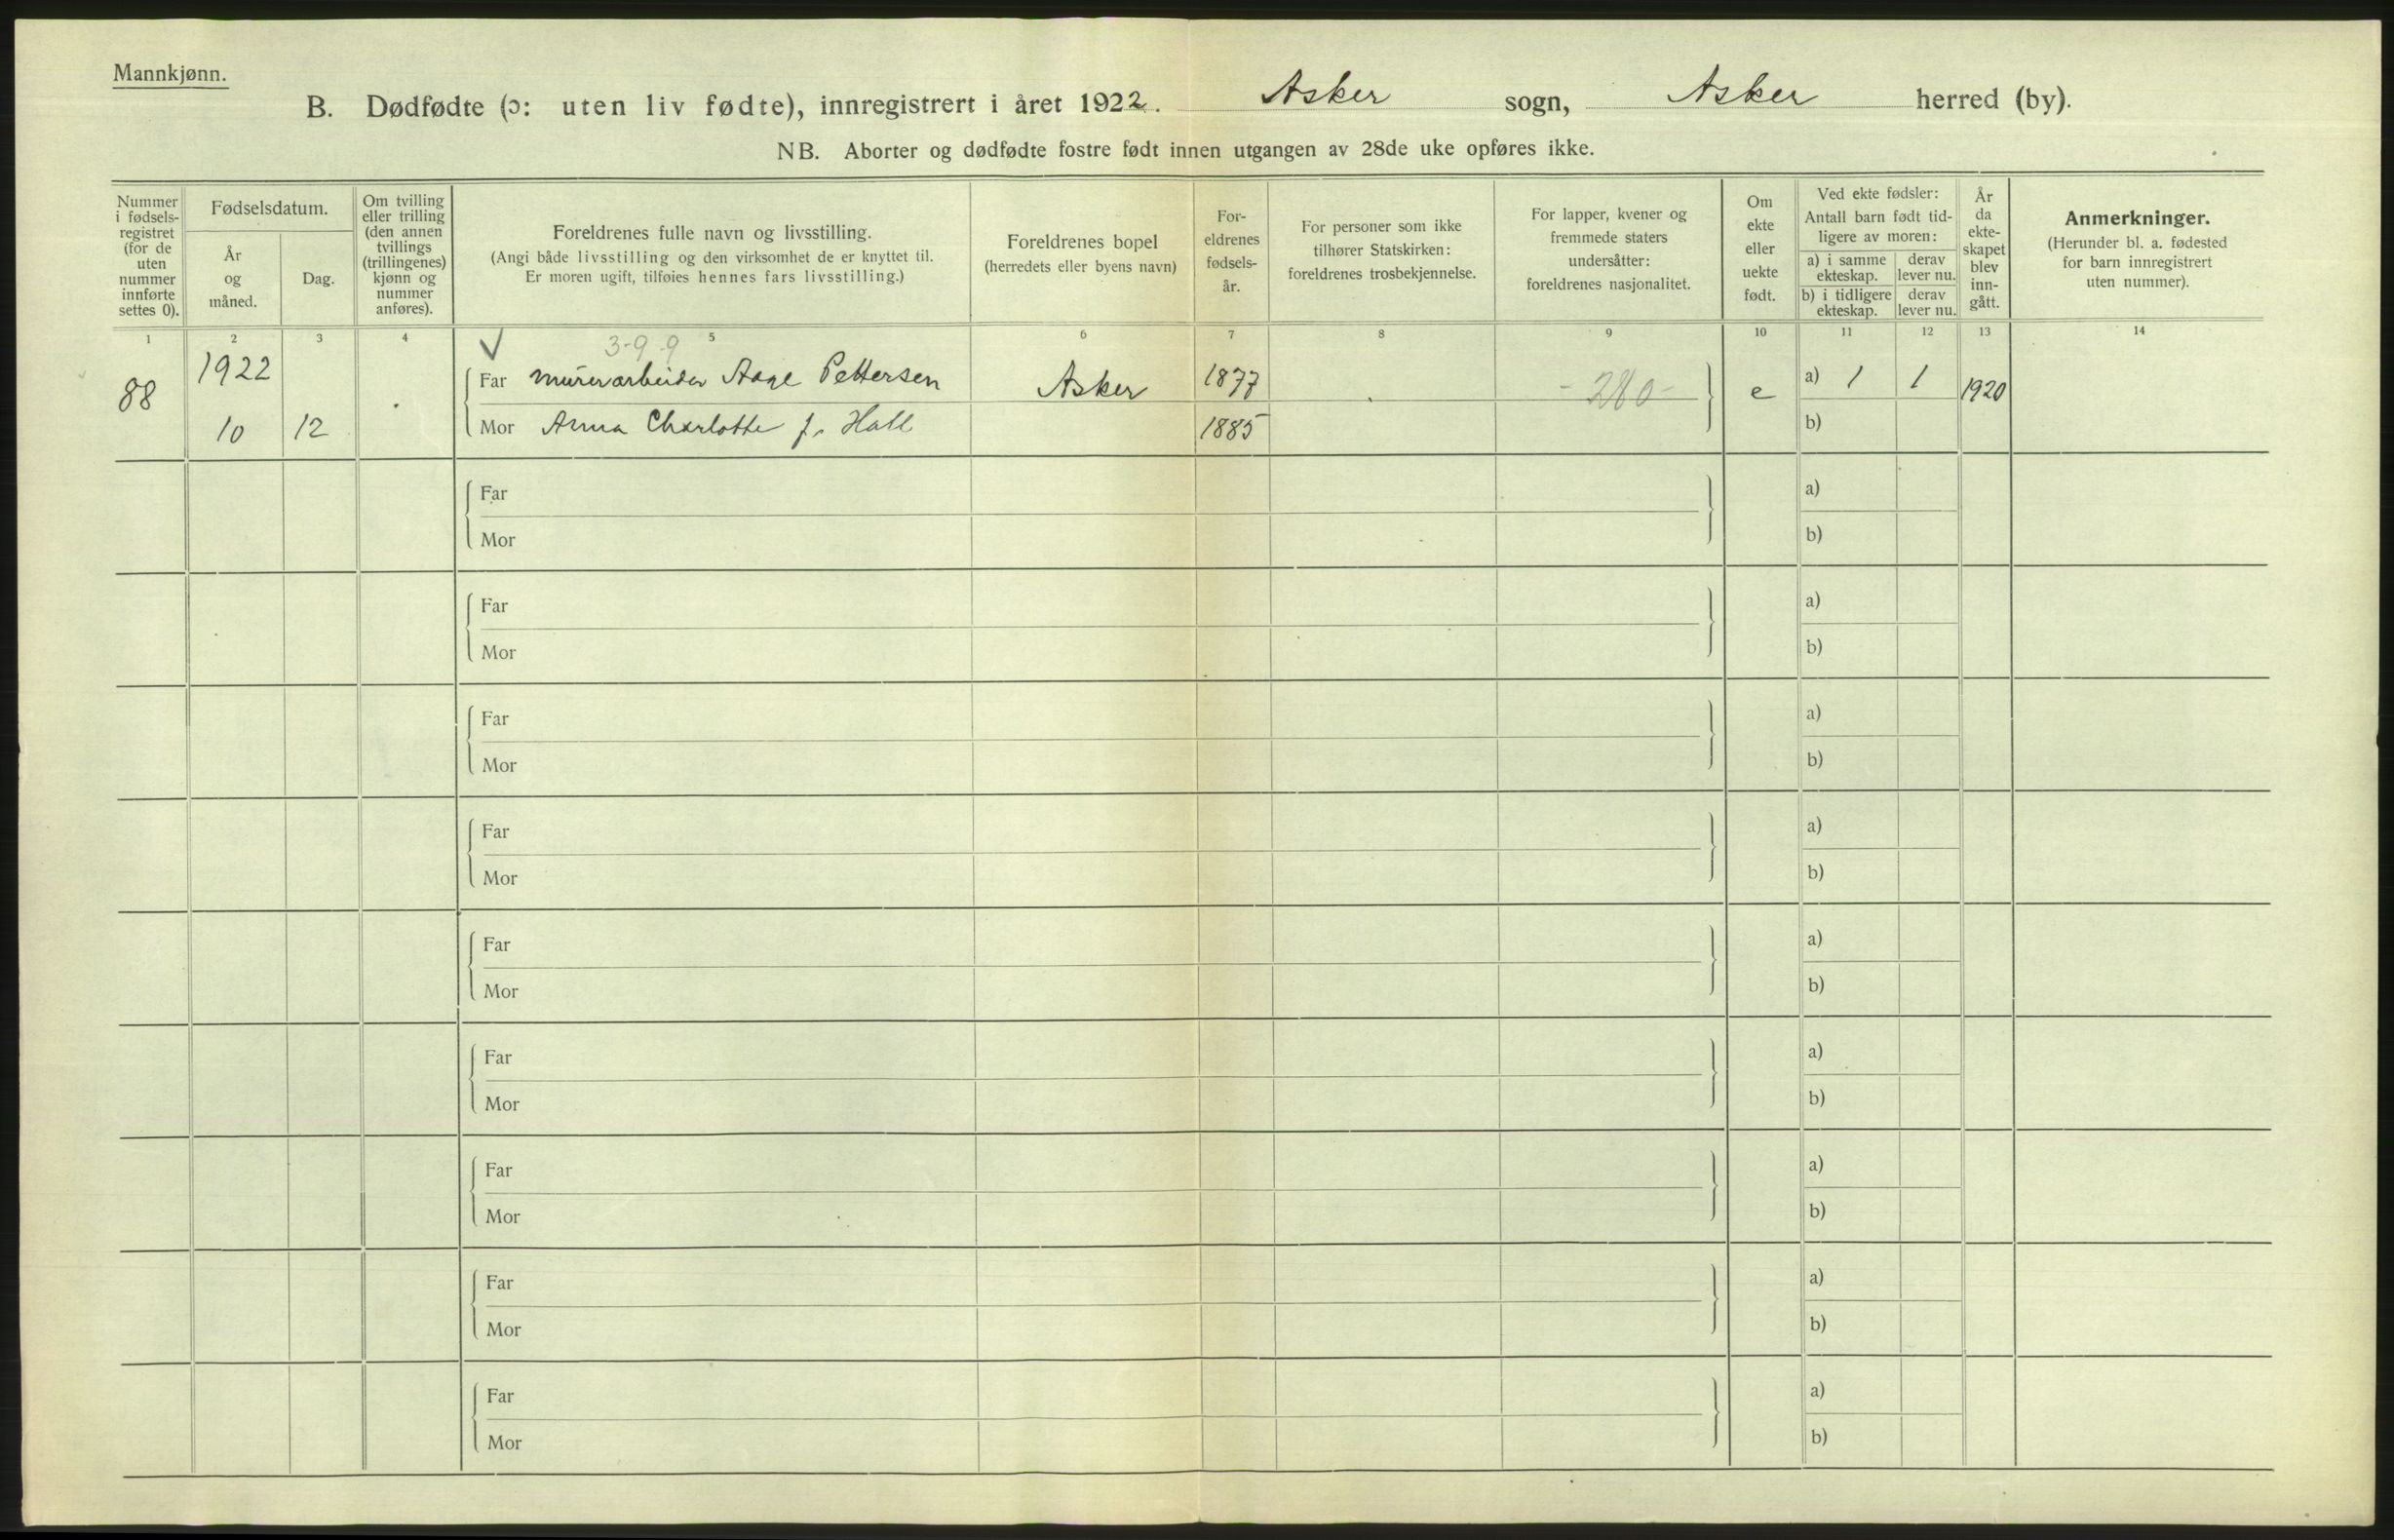 Mannkjønn.
B. Dødfødte (ɔ: uten liv fødte), innregistrert i året 1922. Asker sogn, Asker herred (by).
NB. Aborter og dødfødte fostre født innen utgangen av 28de uke opføres ikke.
Nummer
i fødsels-
registret
(for de
uten
nummer
innførte
settes 0).
Fødselsdatum.
År
og
måned.
Dag.
Om tvilling
eller trilling
(den annen
tvillings
(trillingenes)
kjønn og
nummer
anføres).
Foreldrenes fulle navn og livsstilling.
(Angi både livsstilling og den virksomhet de er knyttet til.
Er moren ugift, tilføies hennes fars livsstilling.)
Foreldrenes bopel
(herredets eller byens navn)
For-
eldrenes
fødsels-
år.
For personer som ikke
tilhører Statskirken:
foreldrenes trosbekjennelse.
For lapper, kvener og
fremmede staters
undersåtter:
foreldrenes nasjonalitet.
Om
ekte
eller
uekte
født.
Ved ekte fødsler:
Antall barn født tid-
ligere av moren:
a) i samme
ekteskap.
derav
lever nu.
b) i tidligere
ekteskap.
derav
lever nu.
År
da
ekte-
skapet
blev
inn-
gått.
Anmerkninger.
(Herunder bl. a. fødested
for barn innregistrert
uten nummer).
1 2 3 4 5 6 7 8 9 10 11 12 13 14
3-9-9
88 1922 Far murerarbeider Aage Pettersen Asker 1877 -280- e a) 1 1 1920
10 12 Mor Anna Charlotte f. Hall 1885 b)
Far a)
Mor b)
Far a)
Mor b)
Far a)
Mor b)
Far a)
Mor b)
Far a)
Mor b)
Far a)
Mor b)
Far a)
Mor b)
Far a)
Mor b)
Far a)
Mor b)